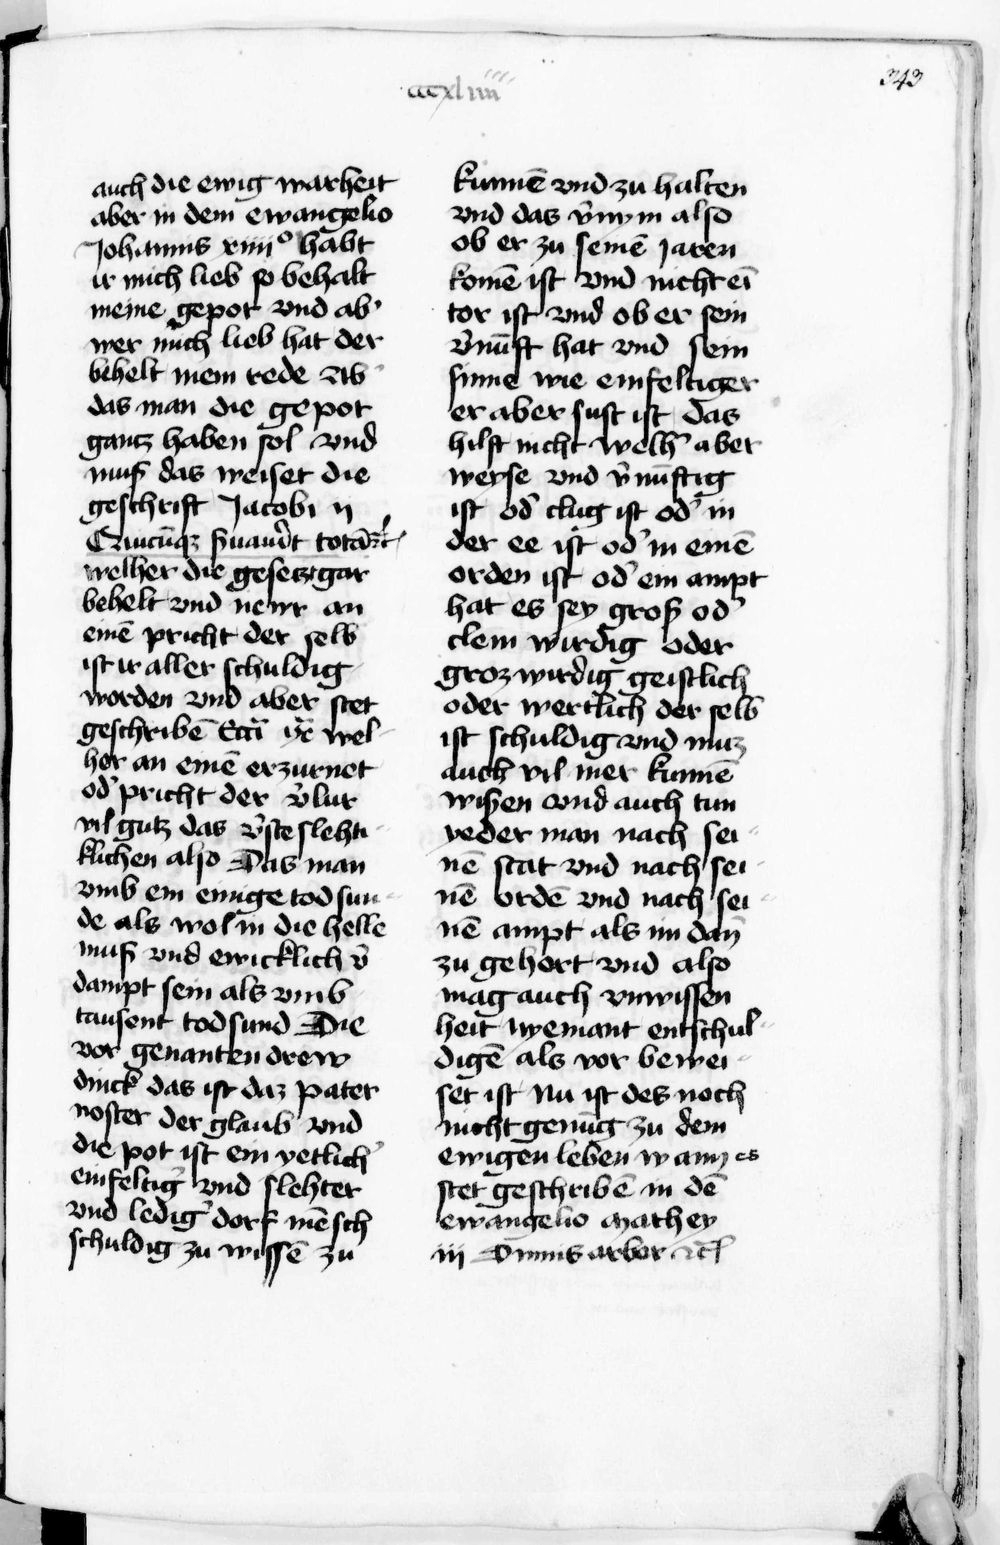 cccxliiii
343
auch die ewig warheit
aber in dem ewangelio
Johannis xiiii° habt
ir mich lieb so behalt
meine gepot vnd ab'
wer mich lieb hat der
behelt mein rede Ab'
das man die gepot
gantz haben sol vnd
muß das weiset die
geschrift Jacobi ij
welher die gesetzt gar
behelt vnd newr an
einē pricht der selb
ist ir aller schuldig
worden vnd aber stet
geschribē Ecci ix wel-
her an einē erzurnet
od' pricht der v̄lur
vil gutz das v̄ste slehti-
klichen also Das man
vmb ein einige tod sun-
de als wol in die helle
muß vnd ewicklich v̄
dampt sein als vmb
tausent tod sund Die
vor genanten drew
dinck das ist daz pater
noster der glaub vnd
die pot ist ein yetlich'
einfeltig' vnd slehter
vnd ledig' dorf mēsch
schuldig zu wissē zu
kunnē vnd zu halten
vnd das v̄nym also
ob er zu seinē Jaren
komē ist vnd nicht ei
tor ist vnd ob er sein
v̄nūft hat vnd sein
sinne wie einfeltiger
er aber sust ist das
hilft nicht welh' aber
weyse vnd v̄nūftig
ist od' clug ist od' in
der ee ist od' in einē
orden ist od' ein ampt
hat es sey groß od'
clein wirdig oder
groz wirdig geistlich
oder wertlich der selb
ist schuldig vnd muz
auch vil mer kunnē
wißen vnd auch tun
yeder man nach sei-
nē stat vnd nach sei-
nē ordē vnd nach sei-
nē ampt als im dan̄
zu gehort vnd also
mag auch vnwissen
heit nyemant entschul-
digē als vor bewei-
set ist Nu ist des noch
nicht genug zu dem
ewigen leben wann es
stet geschribē in dē
ewangelio Mathey
iij Omnis arbor etc̄